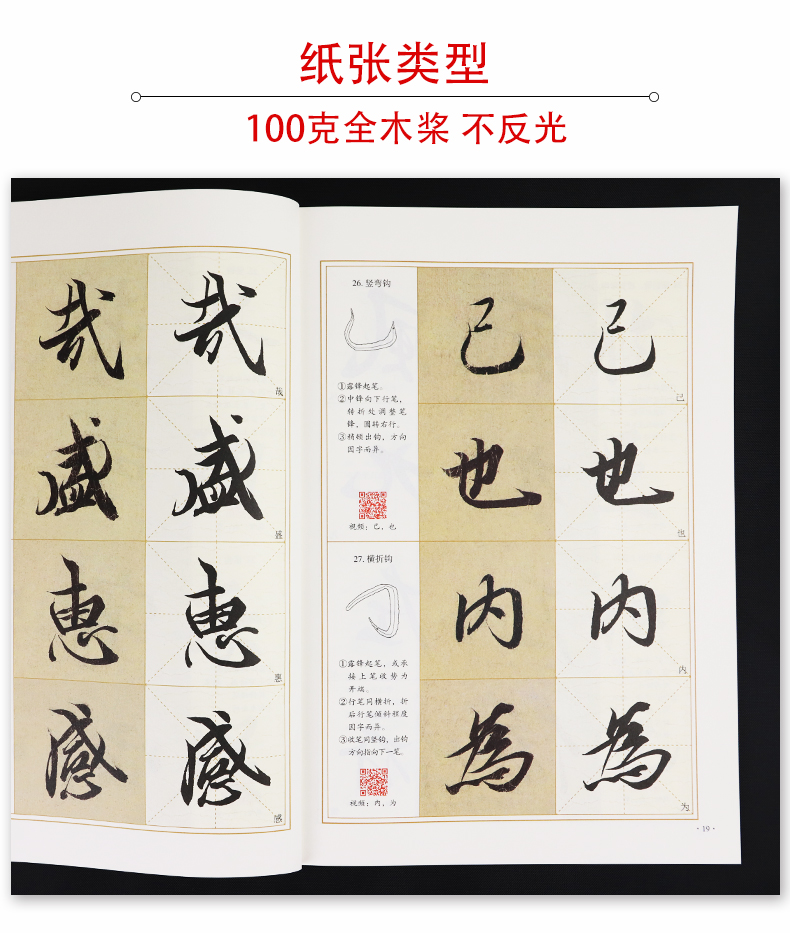 纸张类型
100克全木桨 不反光
哉 哉
哉
盛 盛
盛
惠 惠
惠
感 感
感
26. 竖弯钩
①露锋起笔。
②中锋向下行笔，
转折处调整笔
锋，圆转右行。
③稍顿出钩，方向
因字而异。
视频：已，也
已 已
已
也 也
也
27. 横折钩
①露锋起笔，或承
接上笔收势力
开端。
②行笔同横折，折
后行笔倾斜程度
因字而异。
③收笔同竖钩，出钩
方向指向下一笔。
视频：内，为
内 内
内
為 為
为
·19·